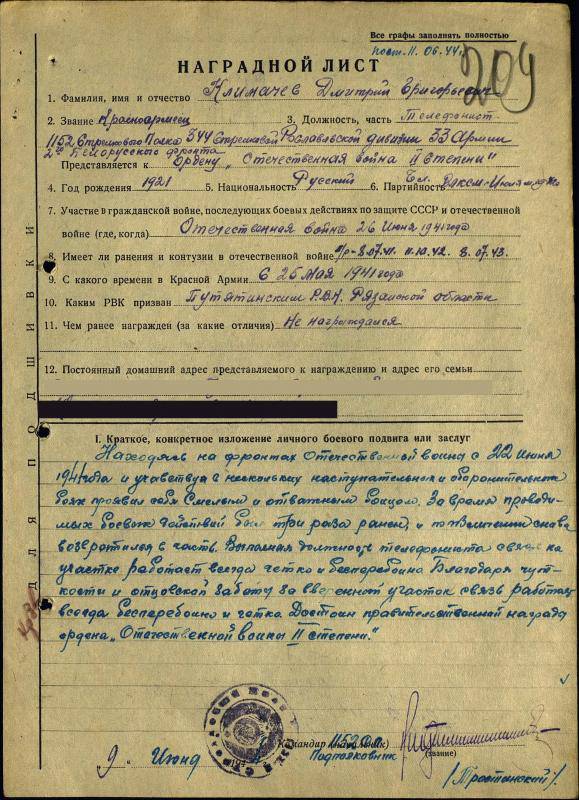 Все графы заполнять полностью
пост. 11. 06. 44 г.
204
НАГРАДНОЙ ЛИСТ
1. Фамилия, имя и отчество Климачев Дмитрий Григорьевич
2. Звание Красноармеец 3. Должность, часть Телефонист
1152 Стрелкового Полка 344 Стрелковой Рославльской дивизии 33 Армии
2го Белорусского фронта
Представляется к Ордену „Отечественная война II степени"
4. Год рождения 1921 5. Национальность Русский 6. Партийность
7. Участие в гражданской войне, последующих боевых действиях по защите СССР и отечественной
войне (где, когда) Отечественная война 26 Июня 1941 года
8. Имеет ли ранения и контузии в отечественной войне 8.07.41. 11.10.42. 8.07.43.
9. С какого времени в Красной Армии С 25 Мая 1941 года
10. Каким РВК призван Путятинским Р.В.К. Рязанской области
11. Чем ранее награжден (за какие отличия) Не награждался
12. Постоянный домашний адрес представляемого к награждению и адрес его семьи
ДЛЯ ПОДШИВКИ
I. Краткое, конкретное изложение личного боевого подвига или заслуг
Находясь на фронтах Отечественной войны с 22 июня
1941 года и участвуя в нескольких наступательных и оборонительных
боях проявил себя смелым и отважным бойцом. За время проводи-
мых боевых действий был три раза ранен, и снова
возвратился в часть. Выполняя должность телефониста связь на
участке работает всегда четко и бесперебойно. Благодаря чут-
кости и отцовской заботу за вверенный участок связь работает
всегда бесперебойно и четко. Достоин правительственной награды
ордена „Отечественной войны II степени."
Командир (начальник) 1152 СП
Подполковник
(звание)
„9" Июня 194
/Тростинский/